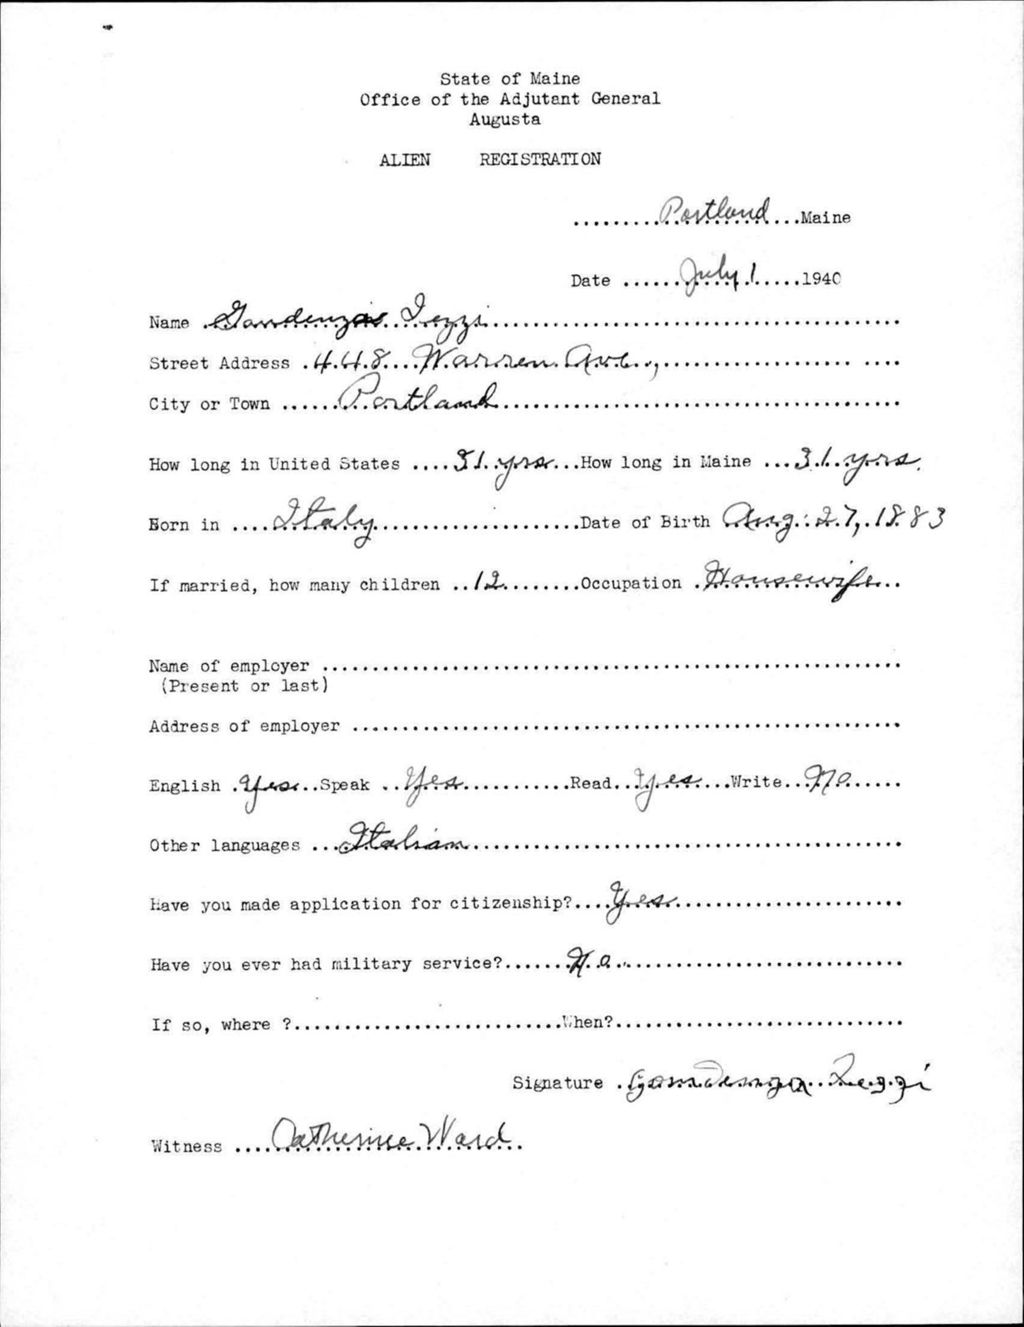 State of Maine
Office of the Adjutant General
Augusta
ALIEN REGISTRATION
.........Portland...Maine
Date ......July 1.....1940
Name .Gaudenza Iezzi..................................................
Street Address .448....Warren Ave.,...................... ....
City or Town ......Portland................................................
How long in United States ....31 yrs...How long in Maine ...31 yrs.
Born in ....Italy.........................Date of Birth Aug. 27, 1883
If married, how many children ..12.........Occupation .Housewife...
Name of employer .....................................................................
(Present or last)
Address of employer ..................................................................
English .Yes..Speak ..Yes.............Read..Yes....Write...No......
Other languages ...Italian....................................................
Have you made application for citizenship?....Yes...........................
Have you ever had military service?.......No.................................
If so, where ?................................When?..................................
Signature . Iezzi
Witness ....Catherine Ward..